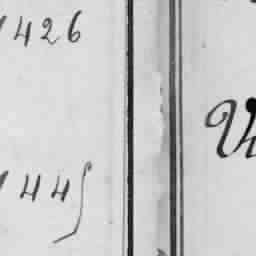 1426
1445